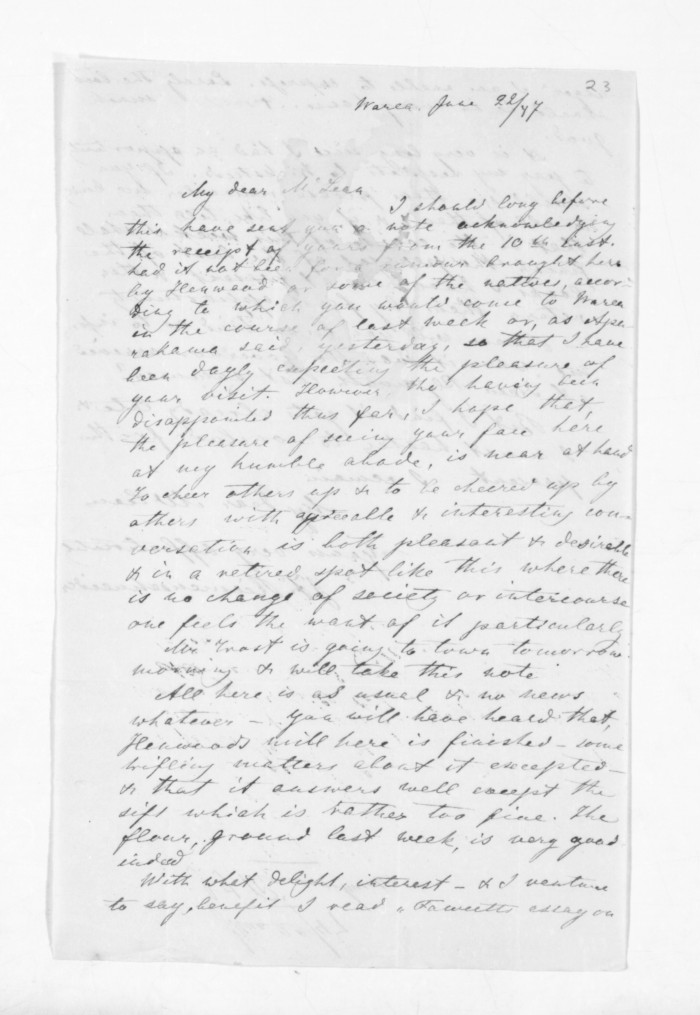 23
Warea June 22/47
My dear McLean
I should long before
this have sent you a note acknowledging
the receipt of yours from the 10th inst.
had it not been for a rumour brought here
by Henwood or some of the natives, accor-
ding to which you would come to Warea
in the course of last week or, as Apo-
rahama said yesterday, so that I have
been dayly expecting the pleasure of
your visit. However, tho' having been
disappointed thus far, I hope that,
the pleasure of seeing your face here
at my humble abode, is near at hand
To cheer others up & to be cheered up by
others with agreeable & interesting con-
versation is both pleasant & desirable
& in a retired spot like this where there
is no change of society or intercourse
one feels the want of it particularly.
Mr Trost is going to town tomorrow
morning & will take this note
All here is as usual & no news
whatever – You will have heard that,
Henwoods mill here is finished – some
trifling matters about it excepted –
& that it answers well except the
sift which is rather too fine. The
flour, ground last week, is very good
indeed
With what delight, interest – & I venture
to say, benefit I read "Fawcetts essay on